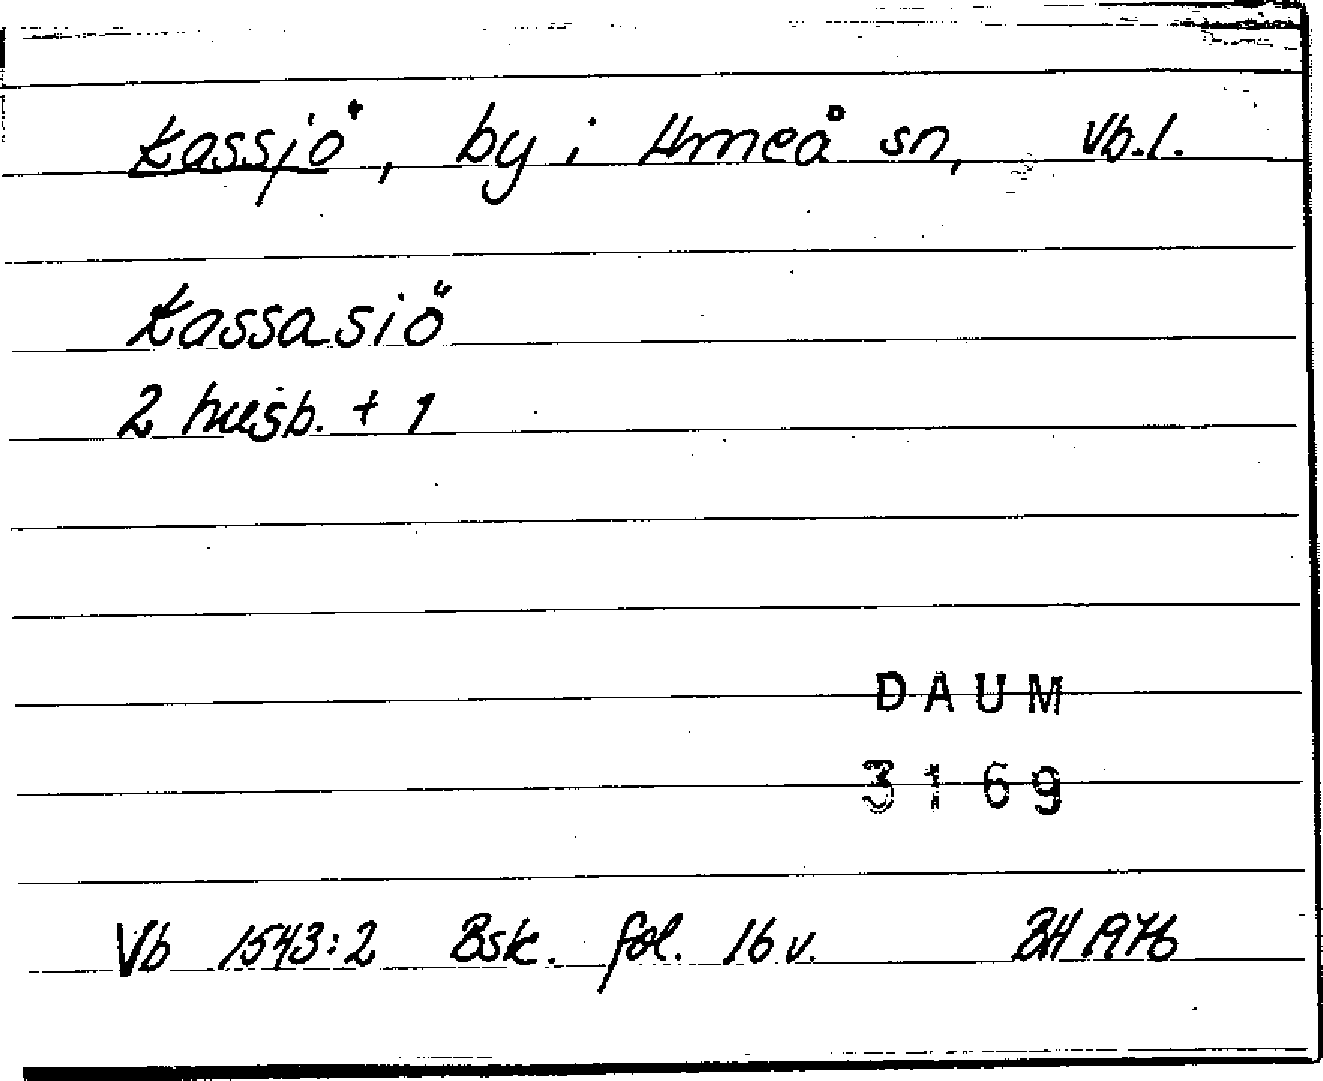 Kassjö, by i Umeå sn, Vb.l.
Kassasiö
2 husb. + 1
DAUM
3169
Vb 1543:2 Bsk. fol. 16 v. BH 1976